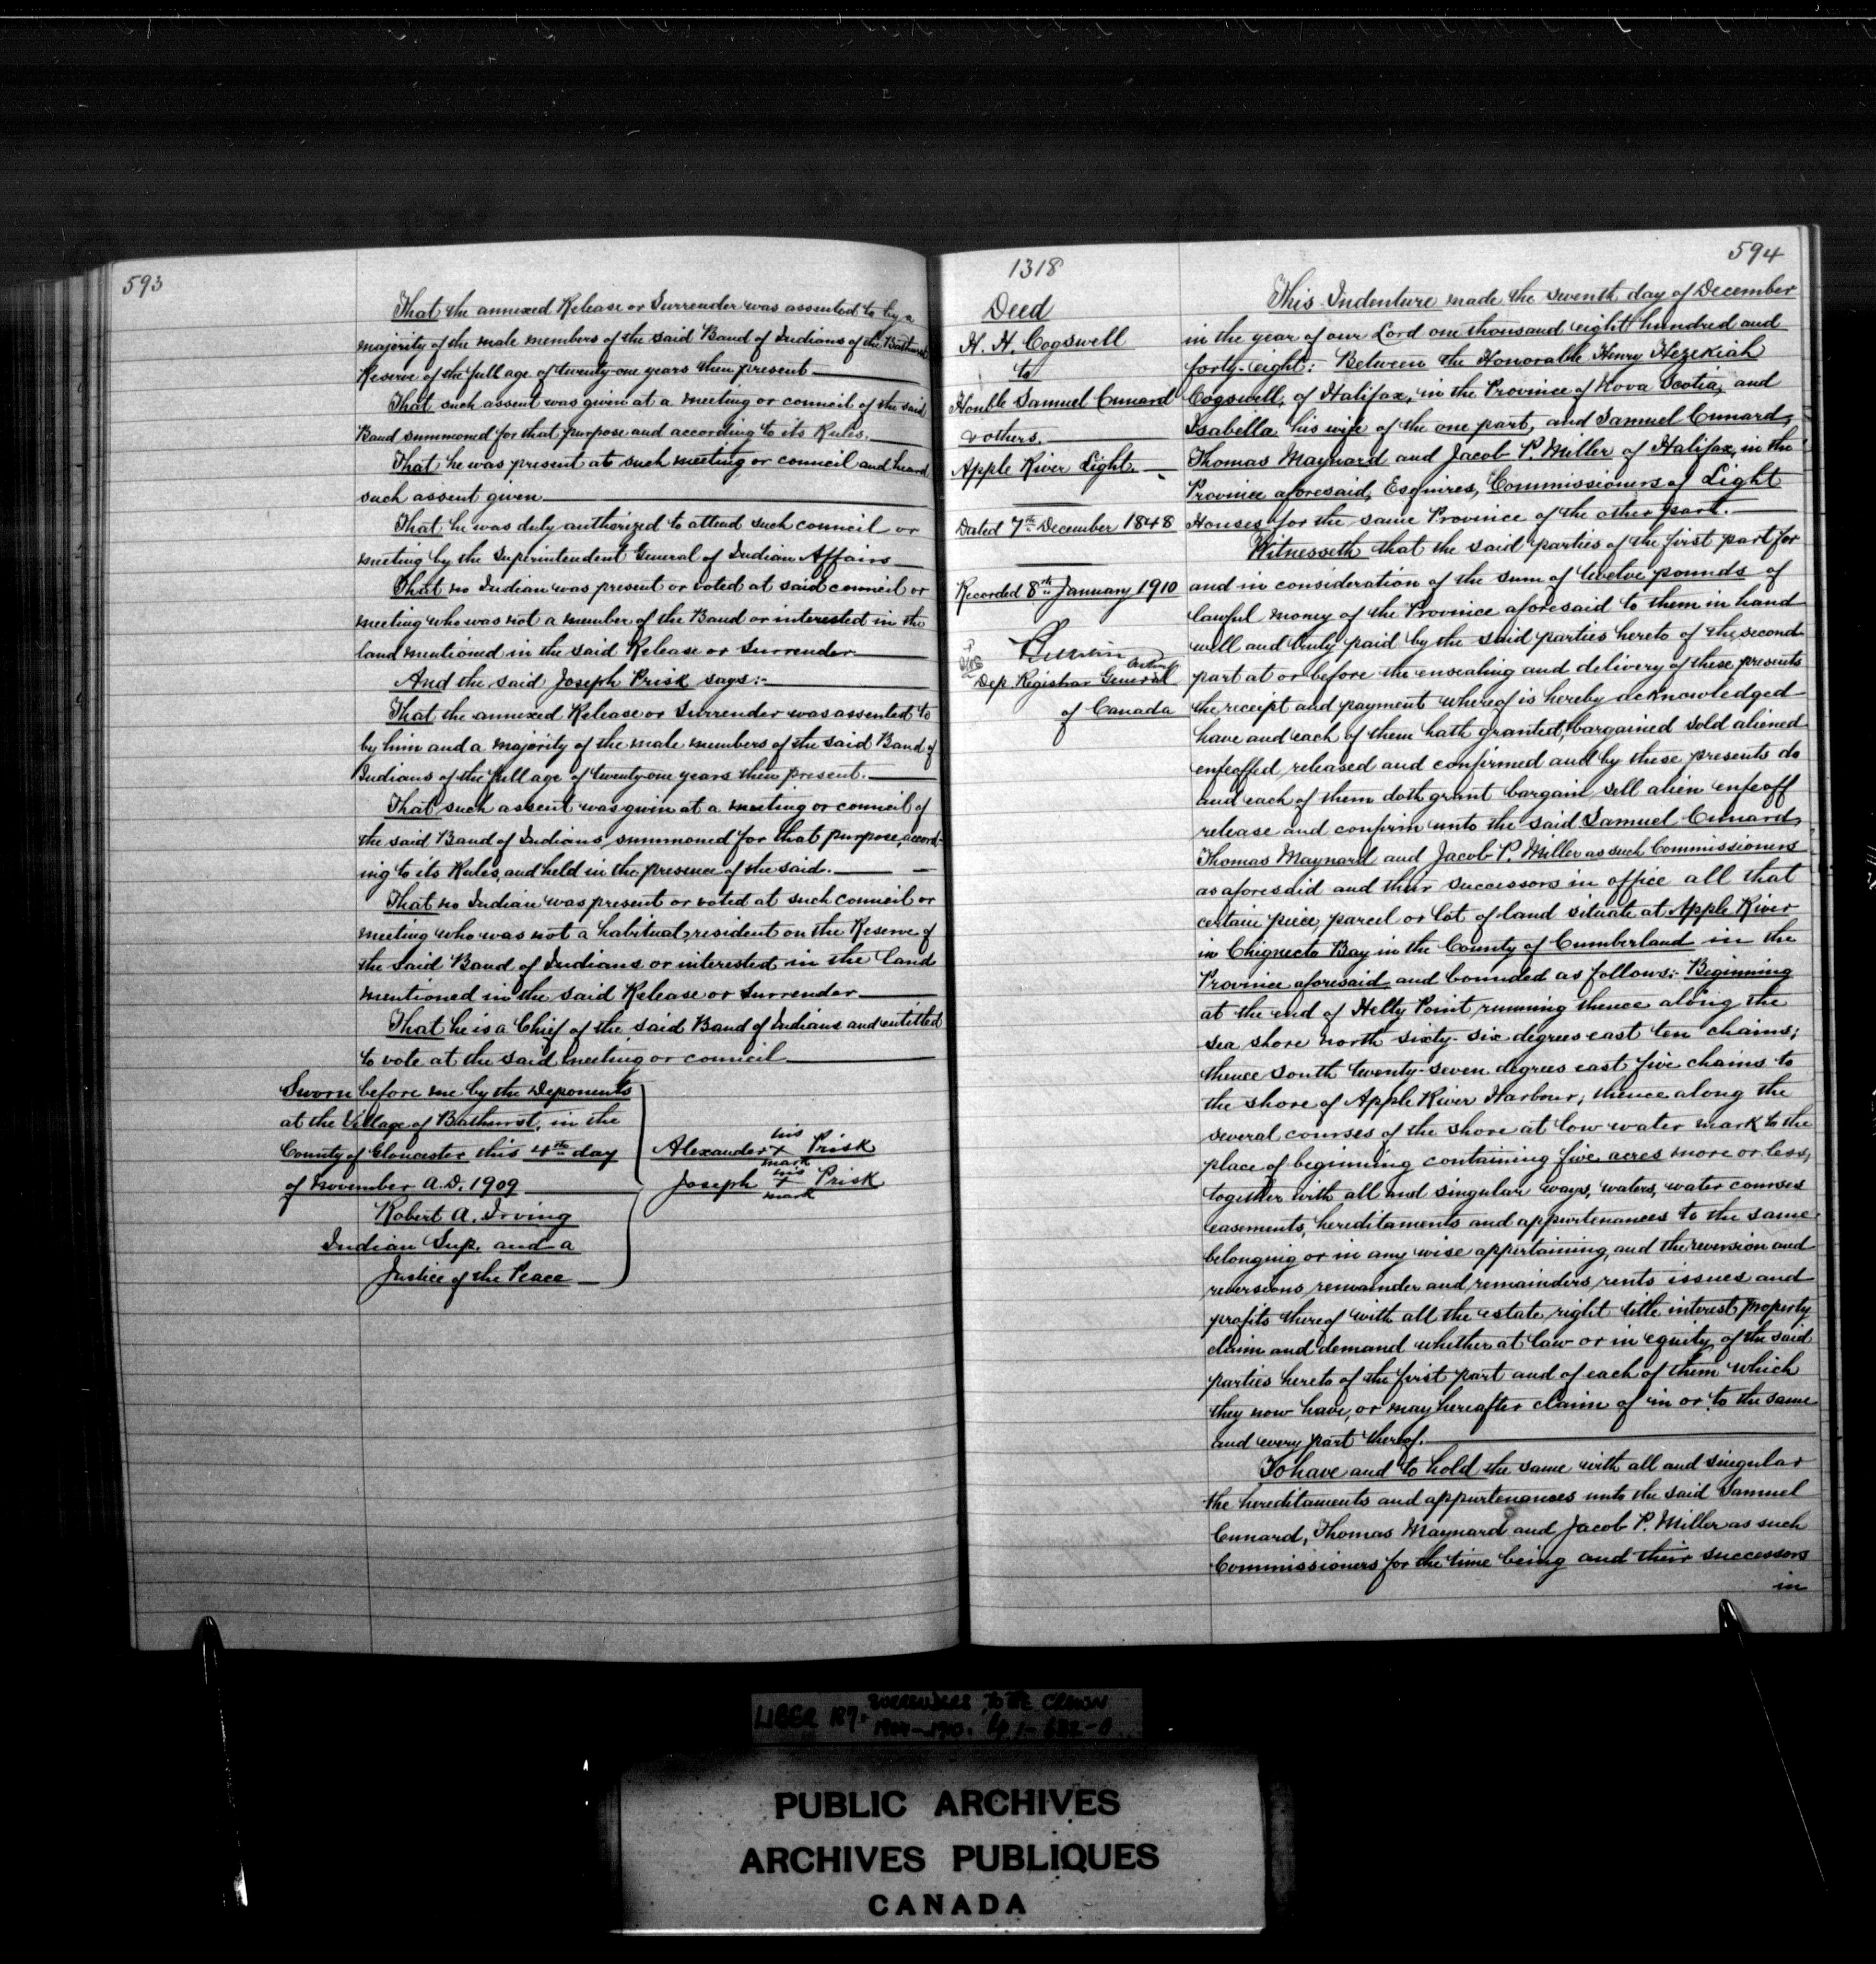 593
That the annexed Release or Surrender was assented to by a
majority of the male members of the said Band of Indians of the Bathurst
Reserve of the full age of twenty-one years then present
That such assent was given at a meeting or council of the said
Band summoned for that purpose and according to its Rules.
That he was present at such meeting or council and heard
such assent given
That he was duly authorized to attend such council or
meeting by the Superintendent General of Indian Affairs
That no Indian was present or voted at said council or
meeting who was not a member of the Band or interested in the
land mentioned in the said Release or Surrender.
And the said Joseph Prisk says:-
That the annexed Release or Surrender was assented to
by him and a majority of the male members of the said Band of
Indians of the full age of twenty-one years then present.
That such assent was given at a meeting or council of
the said Band of Indians, summoned for that purpose, accord-
ing to its Rules, and held in the presence of the said.
That no Indian was present or voted at such council or
meeting who was not a habitual resident on the Reserve of
the said Band of Indians or interested in the land
mentioned in the said Release or Surrender
That he is a Chief of the said Band of Indians and entitled
to vote at the said meeting or council
Sworn before me by the Deponents
at the Village of Bathurst, in the
County of Gloucester this 4th day
of November A.D. 1909
Robert A. Irving
Indian Sup. and a
Justice of the Peace
his
Alexander x Prisk
mark
his
Joseph + Prisk
mark
1318
Deed
H. H. Cogswell
to
Honble Samuel Cunard
& others.
Apple River Light
Dated 7th December 1848
Recorded 8th January 1910
Dep. Registrar General
of Canada
594
This Indenture made the seventh day of December
in the year of our Lord one thousand eight hundred and
forty-eight: Between the Honorable Henry Hezekiah
Cogswell, of Halifax, in the Province of Nova Scotia, and
Isabella his wife of the one part, and Samuel Cunard,
Thomas Maynard and Jacob P. Miller of Halifax, in the
Province aforesaid, Esquires, Commissioners of Light
Houses for the same Province of the other part.
Witnesseth that the said parties of the first part for
and in consideration of the sum of twelve pounds of
lawful money of the Province aforesaid to them in hand
well and truly paid by the said parties hereto of the second
part at or before the ensealing and delivery of these presents
the receipt and payment whereof is hereby acknowledged
have and each of them hath granted, bargained sold aliened
enfeoffed, released and confirmed and by these presents do
and each of them doth grant bargain, sell alien enfeoff
release and confirm unto the said Samuel Cunard,
Thomas Maynard and Jacob P. Miller as such Commissioners
as aforesaid and their successors in office all that
certain piece, parcel or lot of land situate at Apple River
in Chignecto Bay in the County of Cumberland in the
Province aforesaid and bounded as follows:- Beginning
at the end of Helty Point running thence along the
sea shore north sixty-six degrees east ten chains;
thence South twenty-seven degrees east five chains to
the shore of Apple River Harbour; thence along the
several courses of the shore at low water mark to the
place of beginning containing five acres more or less,
together with all and singular ways, waters, water courses
easements, hereditaments and appurtenances to the same
belonging or in any wise appertaining, and the reversion and
reversions, remainder and remainders, rents issues and
profits thereof with all the estate, right title interest property
claim and demand whether at law or in equity, of the said
parties hereto of the first part and of each of them which
they now have, or may hereafter claim of in or to the same
and every part thereof.
To have and to hold the same with all and singular
the hereditaments and appurtenances unto the said Samuel
Cunard, Thomas Maynard and Jacob P. Miller as such
Commissioners for the time being and their successors
in
LIBER 187. SURRENDERS TO THE CROWN
PUBLIC ARCHIVES
ARCHIVES PUBLIQUES
CANADA